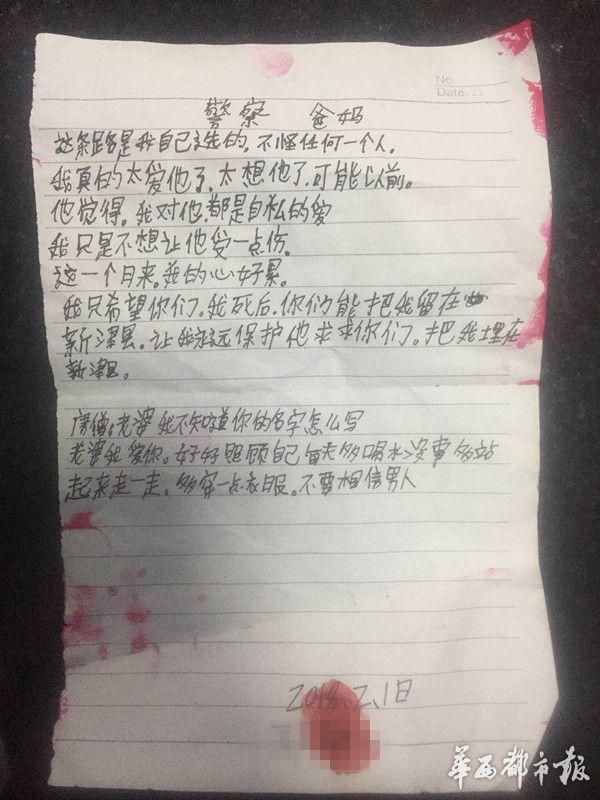 No
Date...
警察 爸妈
这条路是我自己选的，不怪任何一个人．
我真的太爱他了．太想他了．可能以前。
他觉得．我对他．都是自私的爱
我只是不想让他受一点伤．
这一个月来．我的心好累．
我只希望你们．我死后．你们能把我留在
新津县．让我永远保护他求求你们．把我埋在
新津县。
老婆我不知道你的名字怎么写
老婆我爱你．好好照顾自己每天多喝水没事多站
起来走一走．多穿一点衣服．不要相信男人
2018.2.1日
华西都市报